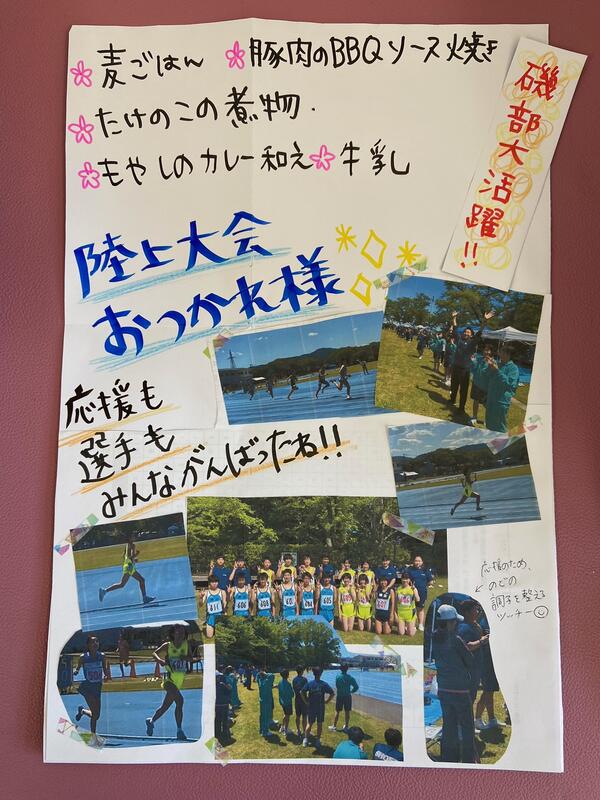 麦ごはん 豚肉のBBQソース焼き
たけのこの煮物.
もやしのカレー和え 牛乳
磯部大活躍!!
陸上大会
おつかれ様
応援も
選手も
みんながんばったね!!
応援のため、
のどの
調子を整える
ツッチー
611 606 608 601 604 605 607